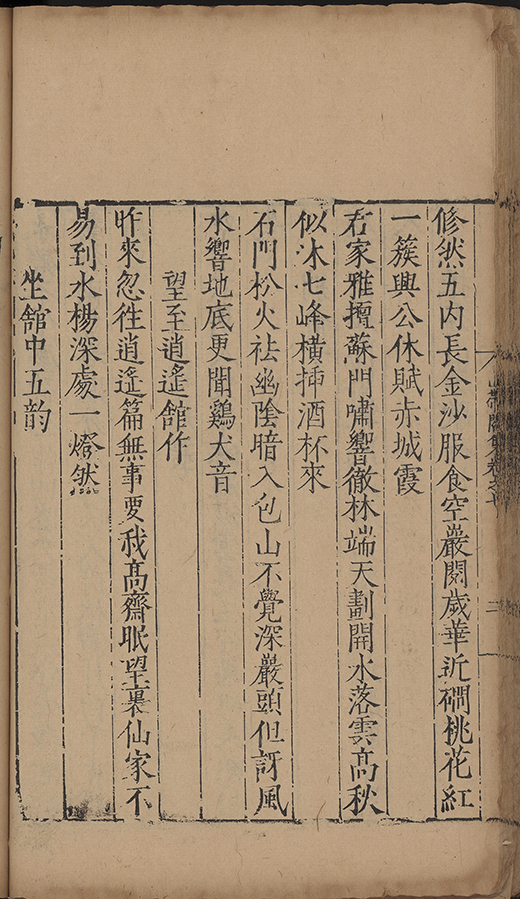 翛然五內長金沙服食空巖閱歲華近礀桃花紅
一簇興公休賦赤城霞
君家雅擅蘇門嘯響徹林端天劃開水落雲高秋
似沐七峰橫揷酒杯來
石門松火祛幽陰暗入包山不覺深巖頭但訝風
水響地底更聞鷄犬音
望至逍遙館作
昨來忽往逍遙篇無事要我高齋眠望裏仙家不
易到水楊深處一燈然
坐館中五韵